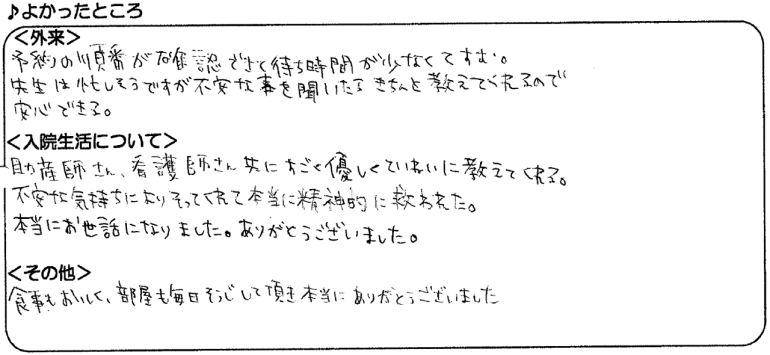 ♪よかったところ
＜外来＞
予約の順番が確認できて待ち時間が少なくてすむ。
先生は忙しそうですが不安な事を聞いたらきちんと教えてくれるので
安心できる。
＜入院生活について＞
助産師さん、看護師さん共にすごく優しくていねいに教えてくれる。
不安な気持ちになりそってくれて本当に精神的に救われた。
本当にお世話になりました。ありがとうございました。
＜その他＞
食事もおいしく、部屋も毎日そうじして頂き本当にありがとうございました